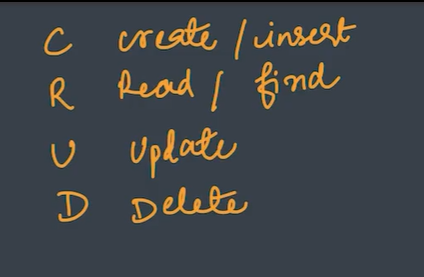 C create / insert
R Read / find
U Update
D Delete